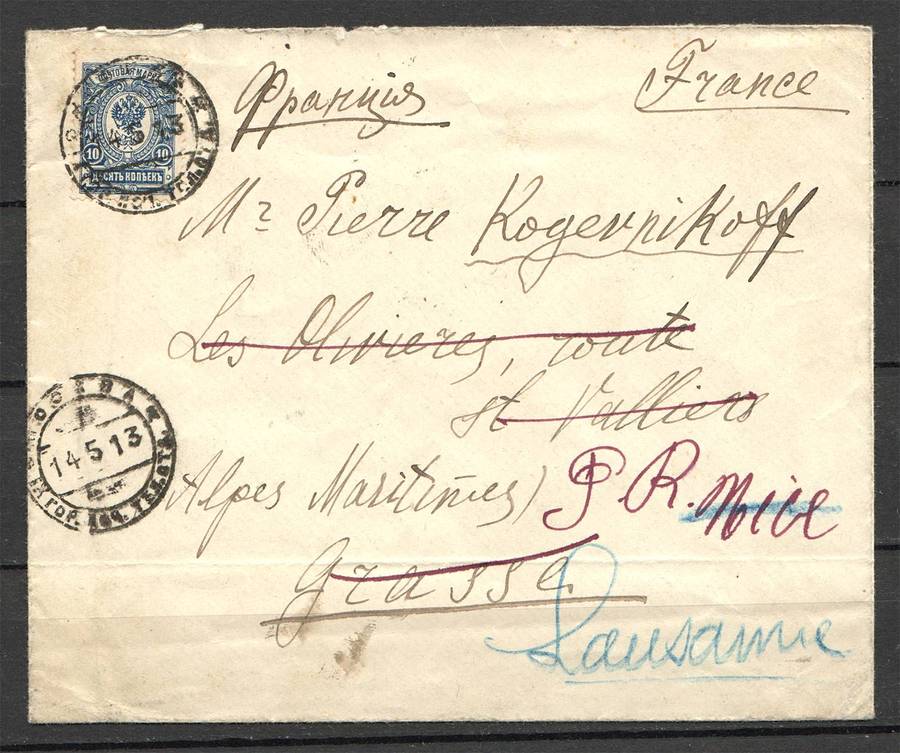 Франція France
ПОЧТОВАЯ МАРКА
10 10
ДЕСЯТЬ КОПѢЕКЪ
Mr Pierre Kogevnikoff
Les Olivieres, route
St Valliers
МОСКВА
14 5 13
Alpes Maritimes) P. R. Nice
Grasse
Lausanne